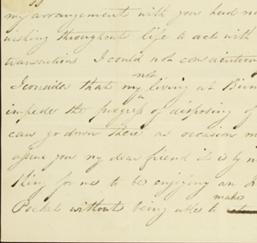 my arrangements with you had no
wishing throughout life to act with
transactions I could not conscientiou
not
I consider that my living at Binn
impedes the progress of disposing of
can go down there as occasion m
assure you my dear friend it is by n
thing for me to be enjoying an
makes
Pocket without being able to